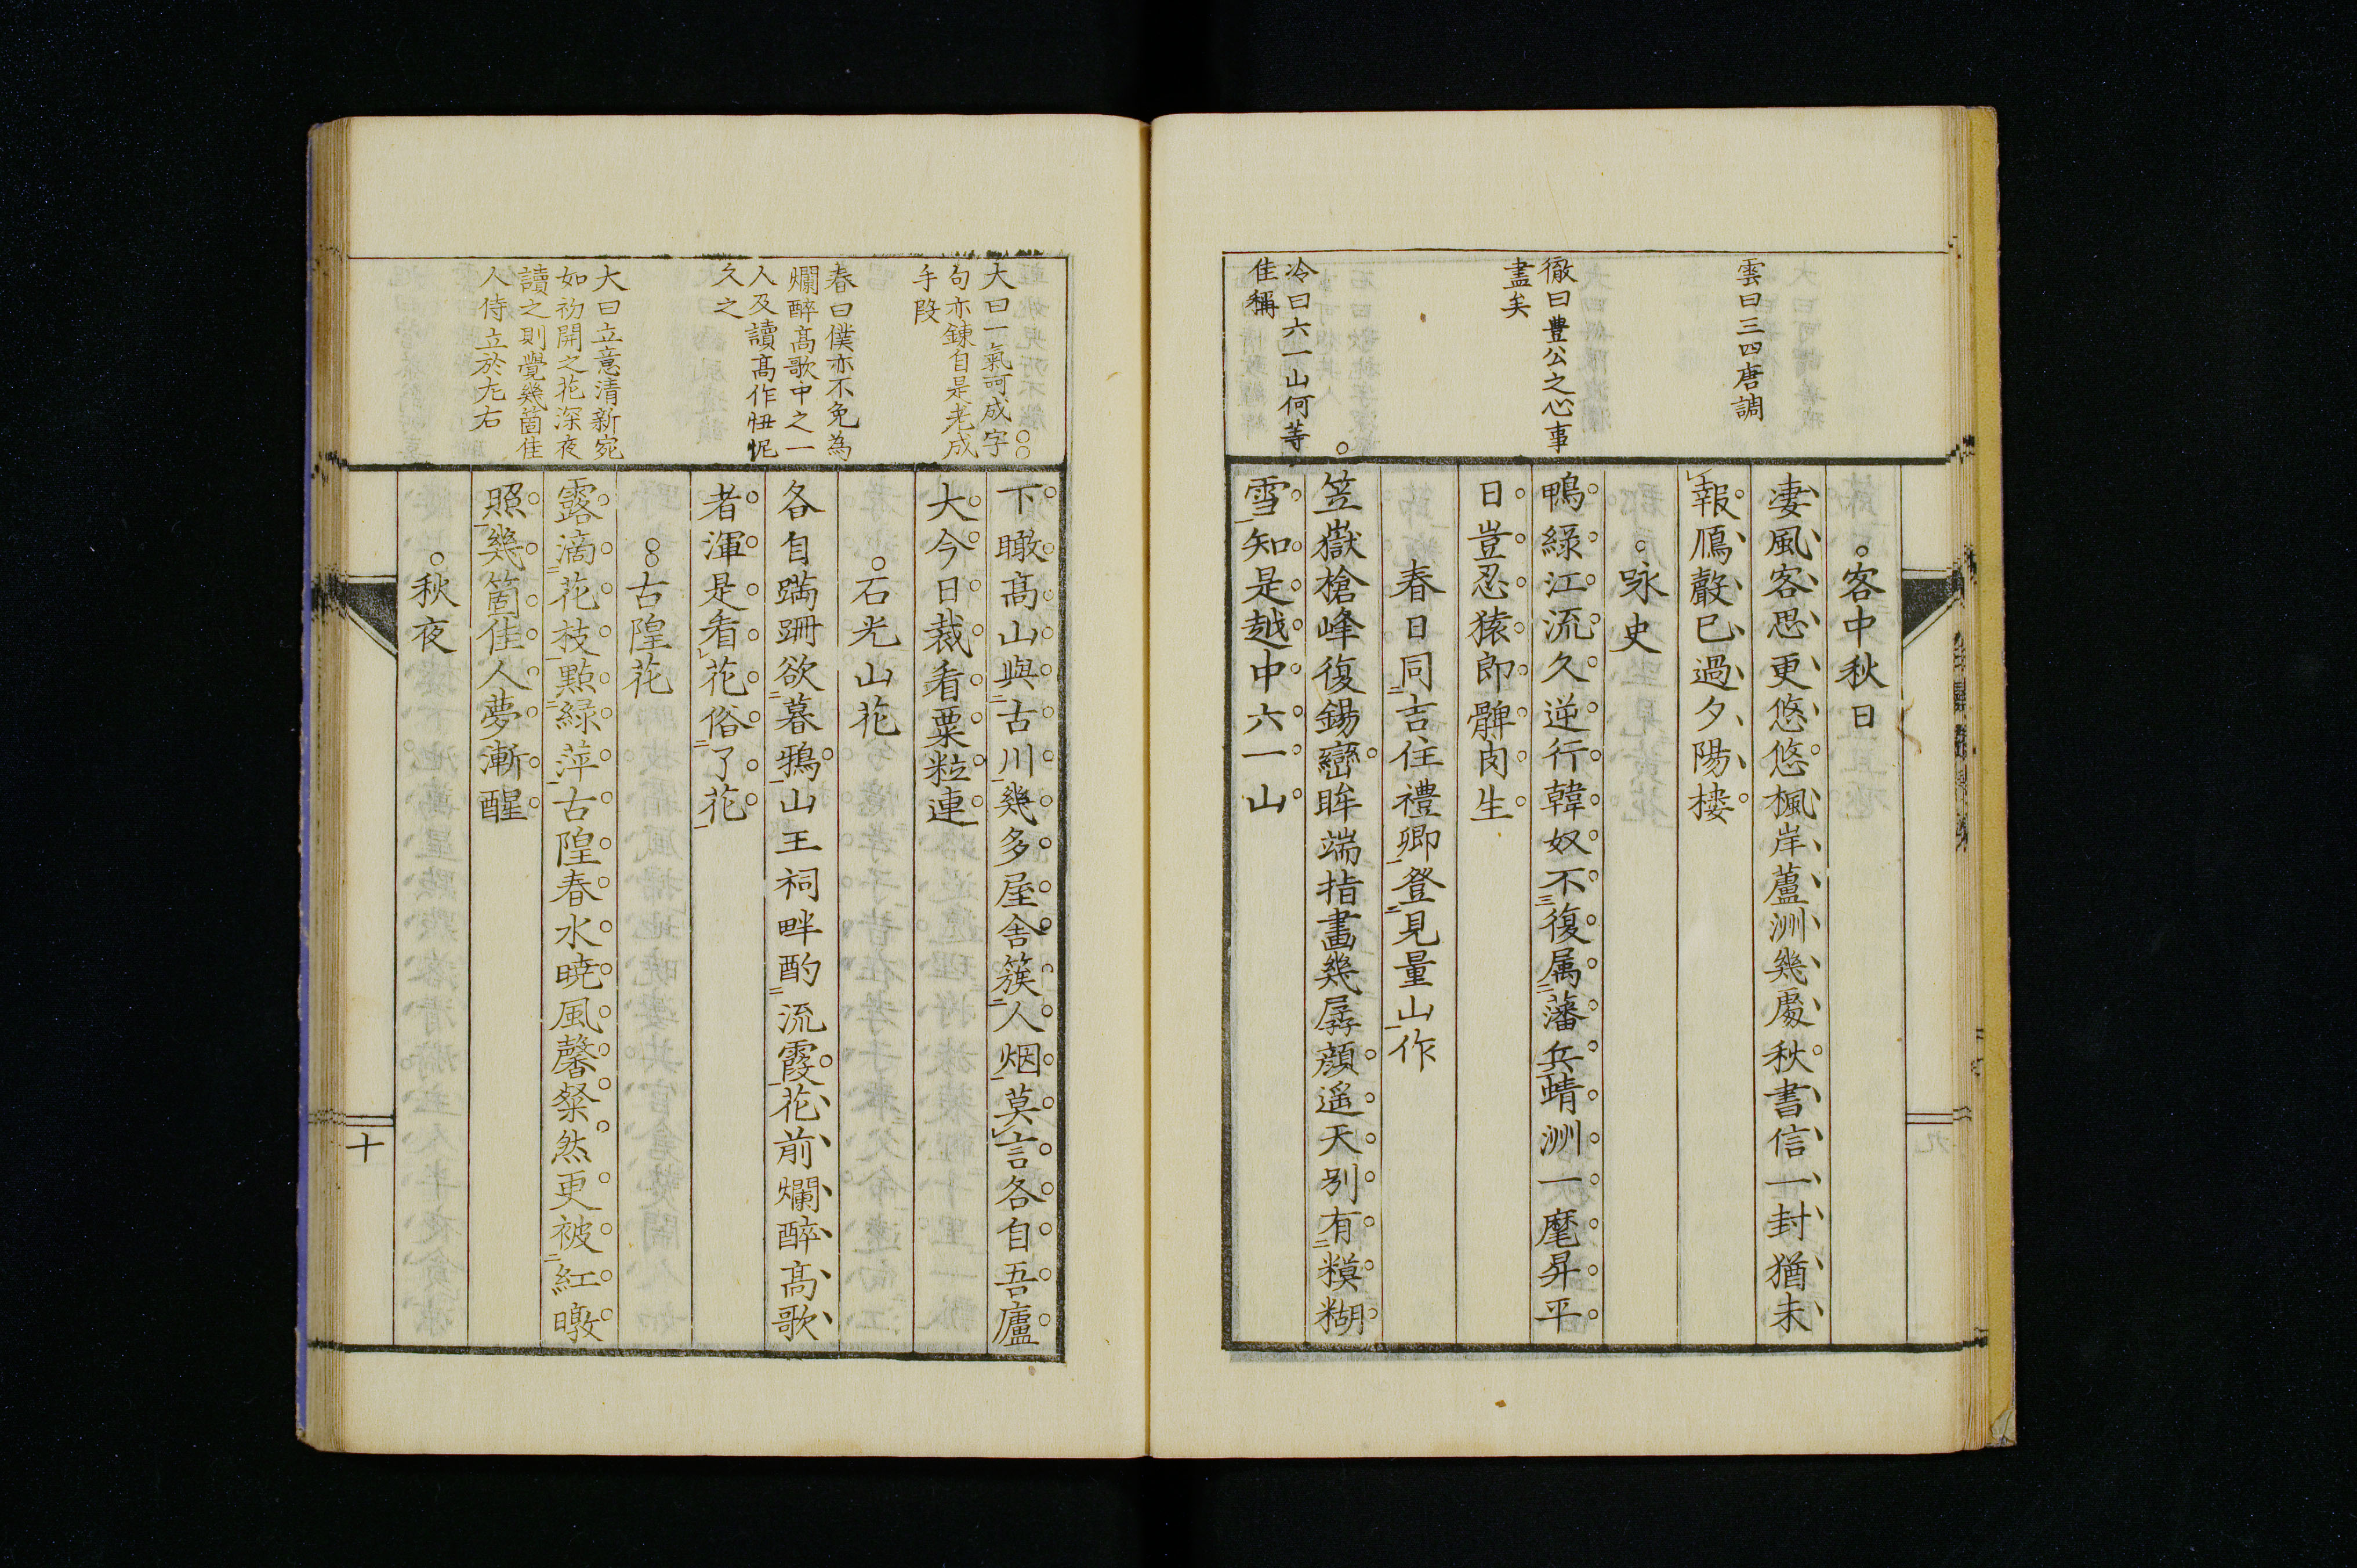 雲曰三四唐調
徹曰豊公之心事
盡矣
冷曰六一山何等
佳稱
客中秋日
凄風客思更悠悠楓岸蘆洲幾處秋書信一封猶未
報鴈聲已過夕陽樓
咏史
鴨綠江流久逆行韓奴不復属藩兵蜻洲一麾昇平
日豈忍猿郎髀肉生
春日同吉住禮卿登見量山作
笠嶽槍峰復錫巒眸端指畫幾孱顔遥天別有糢糊
雪知是越中六一山
大曰一氣呵成字
句亦鍊自是老成
手段
春曰僕亦不免為
爛醉髙歌中之一
人及讀髙作忸怩
久之
大曰立意清新宛
如初開之花深夜
讀之則覺幾箇佳
人侍立於左右
下瞰髙山與古川幾多屋舎簇人烟莫言各自吾廬
大今日裁看粟粒連
石光山花
各自蹣跚欲暮鴉山王祠畔酌流霞花前爛醉髙歌
者渾是看花俗了花
古隍花
露滴花枝點綠萍古隍春水曉風馨粲然更被紅暾
照幾箇佳人夢漸醒
秋夜
十